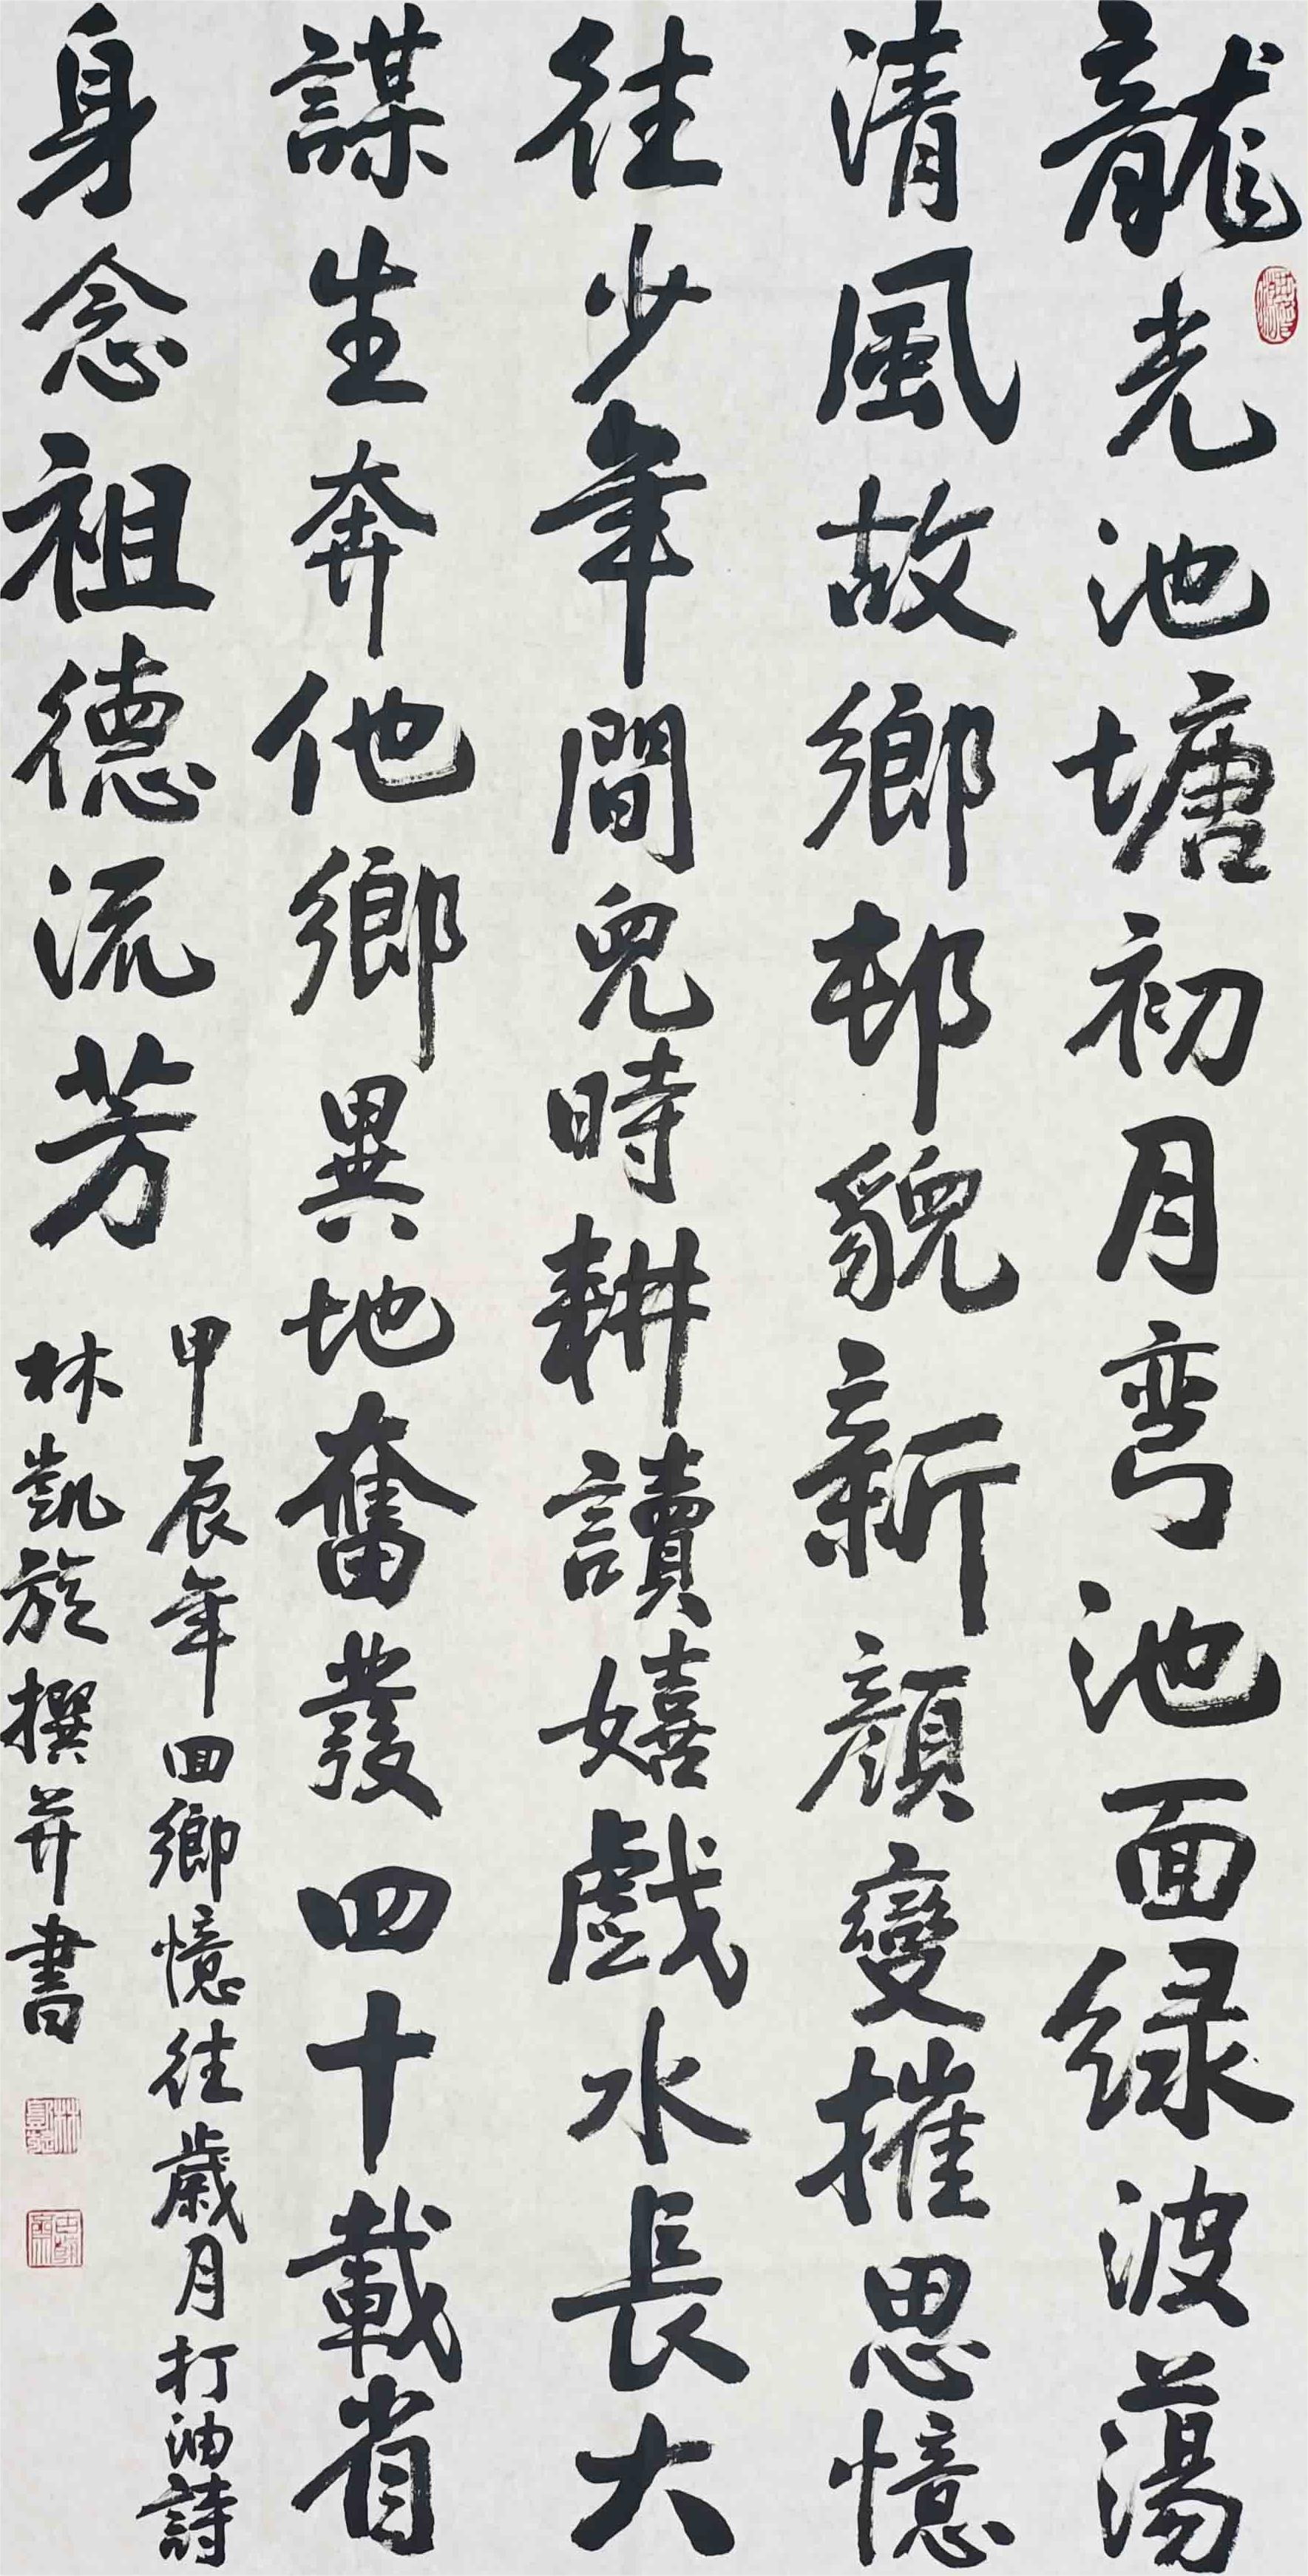 龍光池塘初月彎池面绿波蕩
清風故鄉邨貌新顏變摧思憶
往少年間兒時耕讀嬉戲水長大
謀生奔他鄉異地奮發四十載省
身念祖德流芳
甲辰年回鄉憶往歲月打油詩
林凱旋撰并書